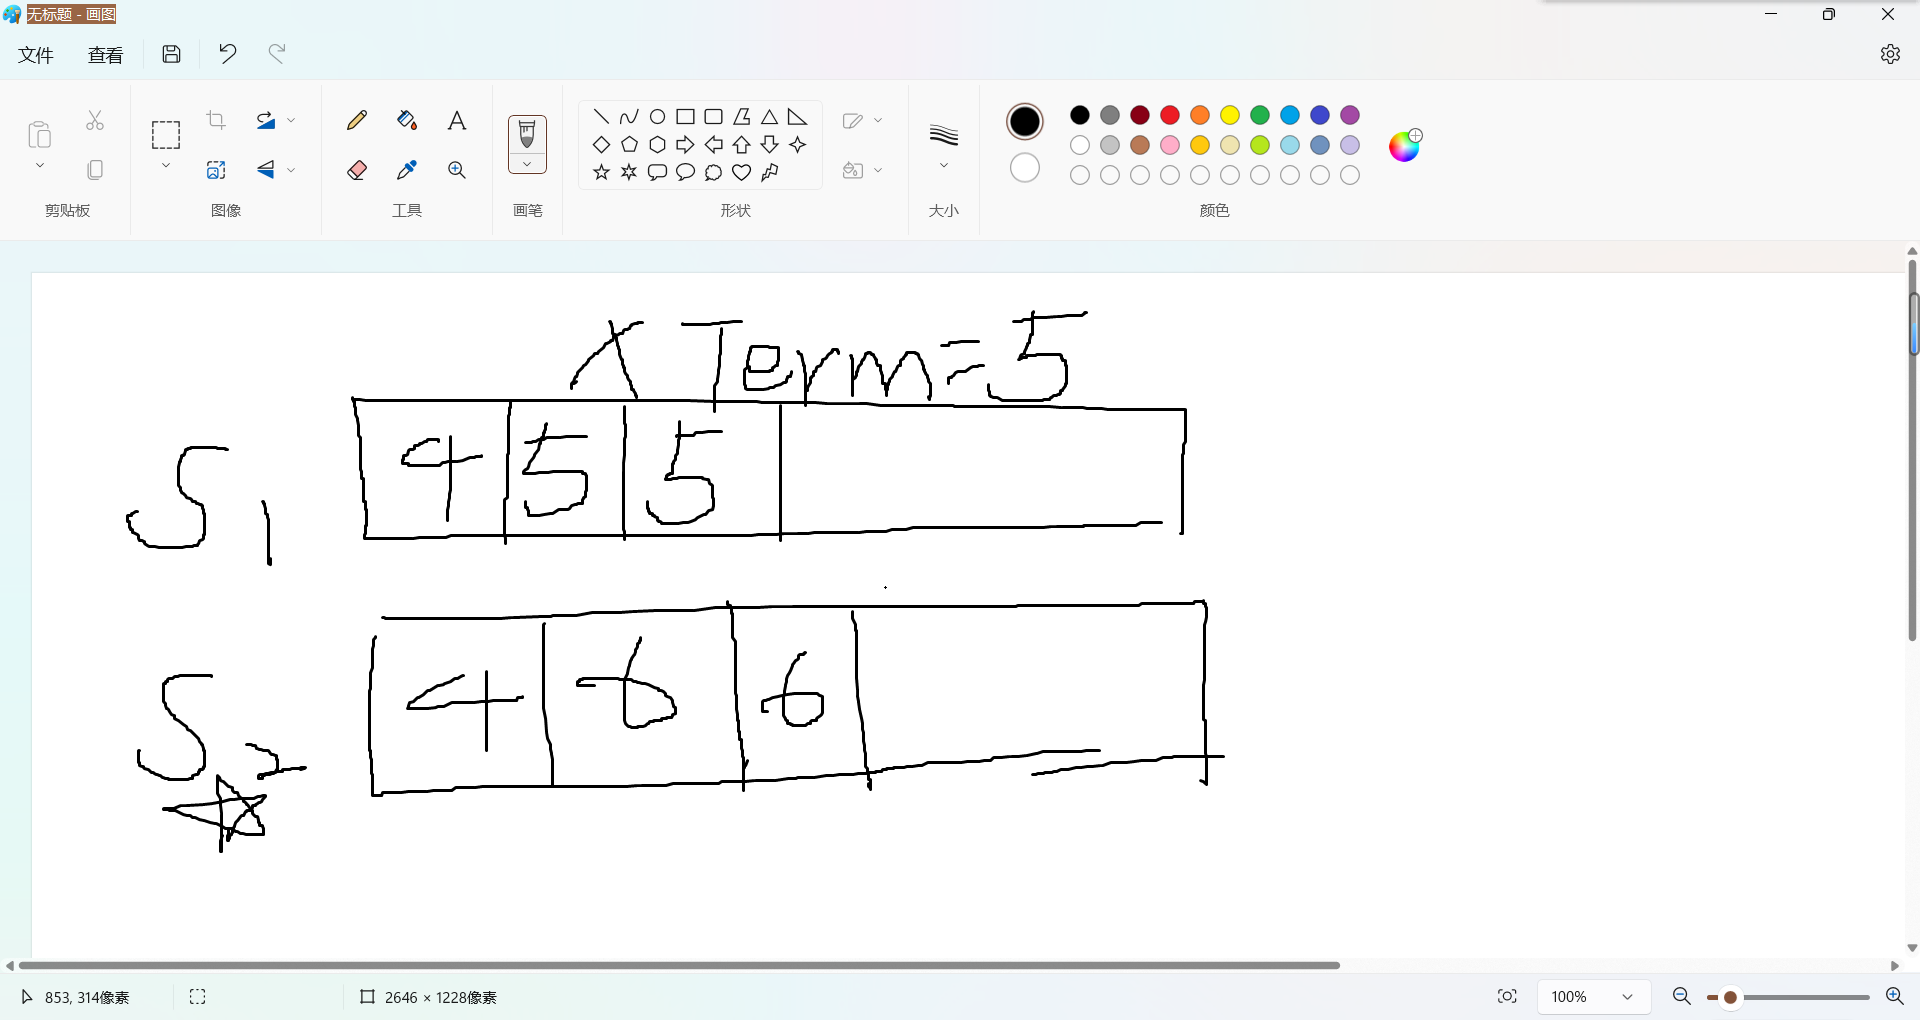 无标题 - 画图
文件 查看
剪贴板 图像 工具 画笔 形状 大小 颜色
X Term=5
S1 4 5 5
S2 4 6 6
853, 314像素 2646 × 1228像素 100%